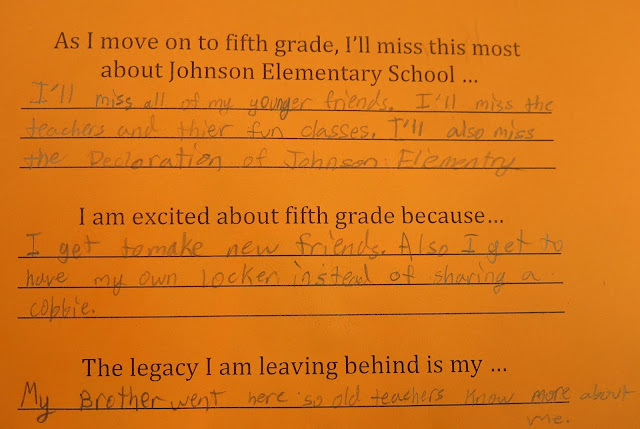 As I move on to fifth grade, I'll miss this most
about Johnson Elementary School ...
I'll miss all of my younger friends. I'll miss the
teachers and thier fun classes. I'll also miss
the Decloration of Johnson Elementry
I am excited about fifth grade because...
I get to make new friends. Also I get to
have my own locker instead of sharing a
cobbie.
The legacy I am leaving behind is my ...
My Brother went here so old teachers know more about
me.